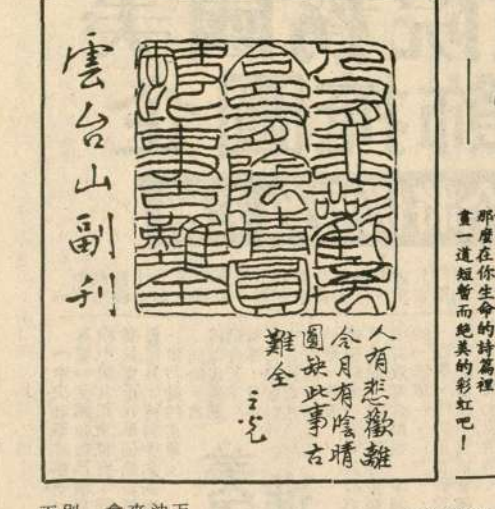 那麼在你生命的詩篇裡
畫一道短暫而絕美的彩虹吧！
人有悲歡離
合月有陰晴圓
缺此事古難全
人有悲歡離
合月有陰晴
圓缺此事古
難全
雲台山副刊